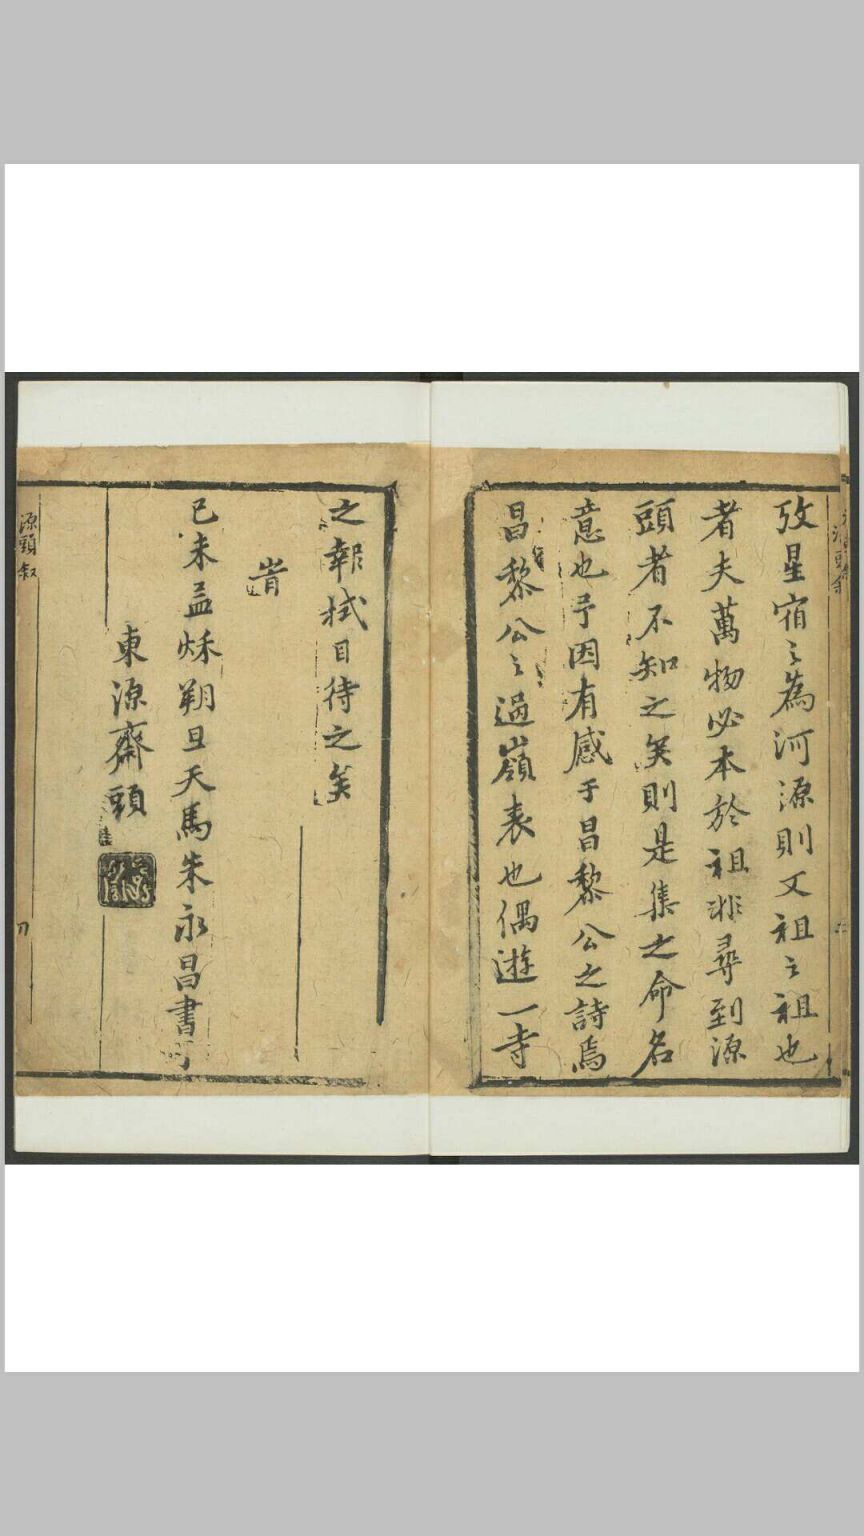 攷星宿之為河源則又祖之祖也
者夫萬物必本於祖非尋到源
頭者不知之矣則是集之命名
意也予因有感于昌黎公之詩焉
昌黎公之過嶺表也偶遊一寺
之報拭目待之矣
旹
己未孟秌朔旦天馬朱永昌書
東源齋頭
源頭叙